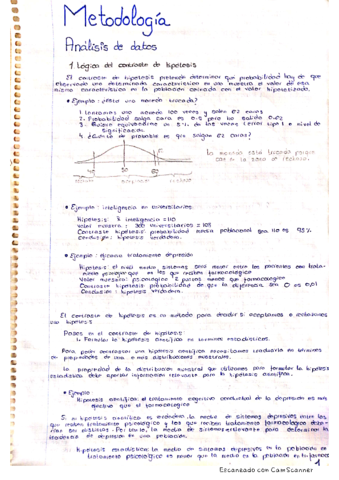 Metodología
Análisis de datos
1. Lógica del contraste de hipótesis
El contraste de hipótesis pretende determinar que probabilidad hay de que
observando una determinada característica en una muestra el valor de esa
misma característica en la población coincida con el valor hipotetizado.
• Ejemplo: ¿Está una moneda trucada?
1. Lanzamos una moneda 100 veces y salen 62 caras
2. Probabilidad salga cara es 0.5 pero ha salido 0.62
3. equivocarme un 5% de las veces (error tipo I o nivel de
significación)
4. ¿Cuánto de probable es que salgan 62 caras?
La moneda está trucada porque
cae en la zona de rechazo.
50
• Ejemplo: inteligencia en universitarios.
Hipótesis: inteligencia = 110
Valor muestra: 300 universitarios = 109
Contraste hipótesis: probabilidad media poblacional sea 110 es 95%
Conclusión: hipótesis verdadera.
• Ejemplo: eficacia tratamiento depresión
Hipótesis: el nivel medio síntomas será menor entre los pacientes con trata-
miento psicológico que en los que reciben farmacológico
Valor muestra: psicológico 2 puntos menos que farmacológico
Contraste hipótesis: probabilidad de que la diferencia sea 0 es 0,01
Conclusión: hipótesis verdadera.
El contraste de hipótesis es un método para decidir si aceptamos o rechazamos
una hipótesis
Pasos en el contraste de hipótesis:
1. Formular la hipótesis científica en términos estadísticos.
Para poder contrastar una hipótesis científica necesitamos traducirla en términos
de propiedades de una o más distribuciones muestrales.
La propiedad de la distribución muestral que utilicemos para formular la hipótesis
estadística debe aportar información relevante para la hipótesis científica.
• Ejemplo
Hipótesis científica: el tratamiento cognitivo conductual de la depresión es más
efectivo que el farmacológico
Si mi hipótesis científica es verdadera la media de síntomas depresivos entre los
que reciben tratamiento psicológico y los que reciben tratamiento farmacológico deberían
ser distintas. Por tanto, la media de síntomas es relevante para determinar el
trastorno de depresión en una población.
Hipótesis estadística: la media de síntomas depresivos en la población en
tratamiento psicológico es menor que la media en la población en tratamiento
1
Escaneado con CamScanner